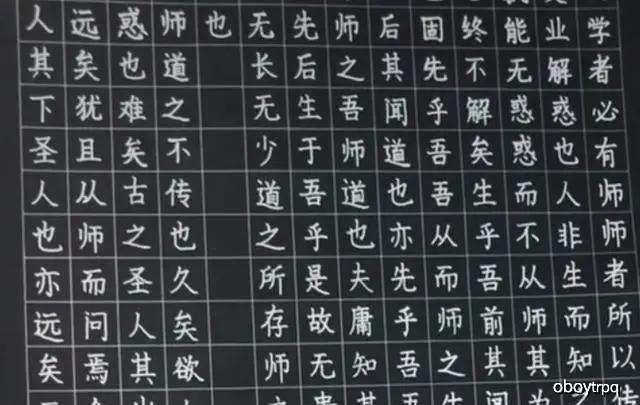 学者必有师师者所以传
业解惑也人非生而知之
能无惑惑而不从师其为
终不解矣生乎吾前其闻
固先乎吾吾从而师之
后其闻道也亦先乎吾
师之吾师道也夫庸知其
先后生于吾乎是故无
无长无少道之所存师
也
师道之不传也久矣欲
惑也难矣古之圣人其
远矣犹且从师而问焉
人其下圣人也亦远矣
oboytrpq